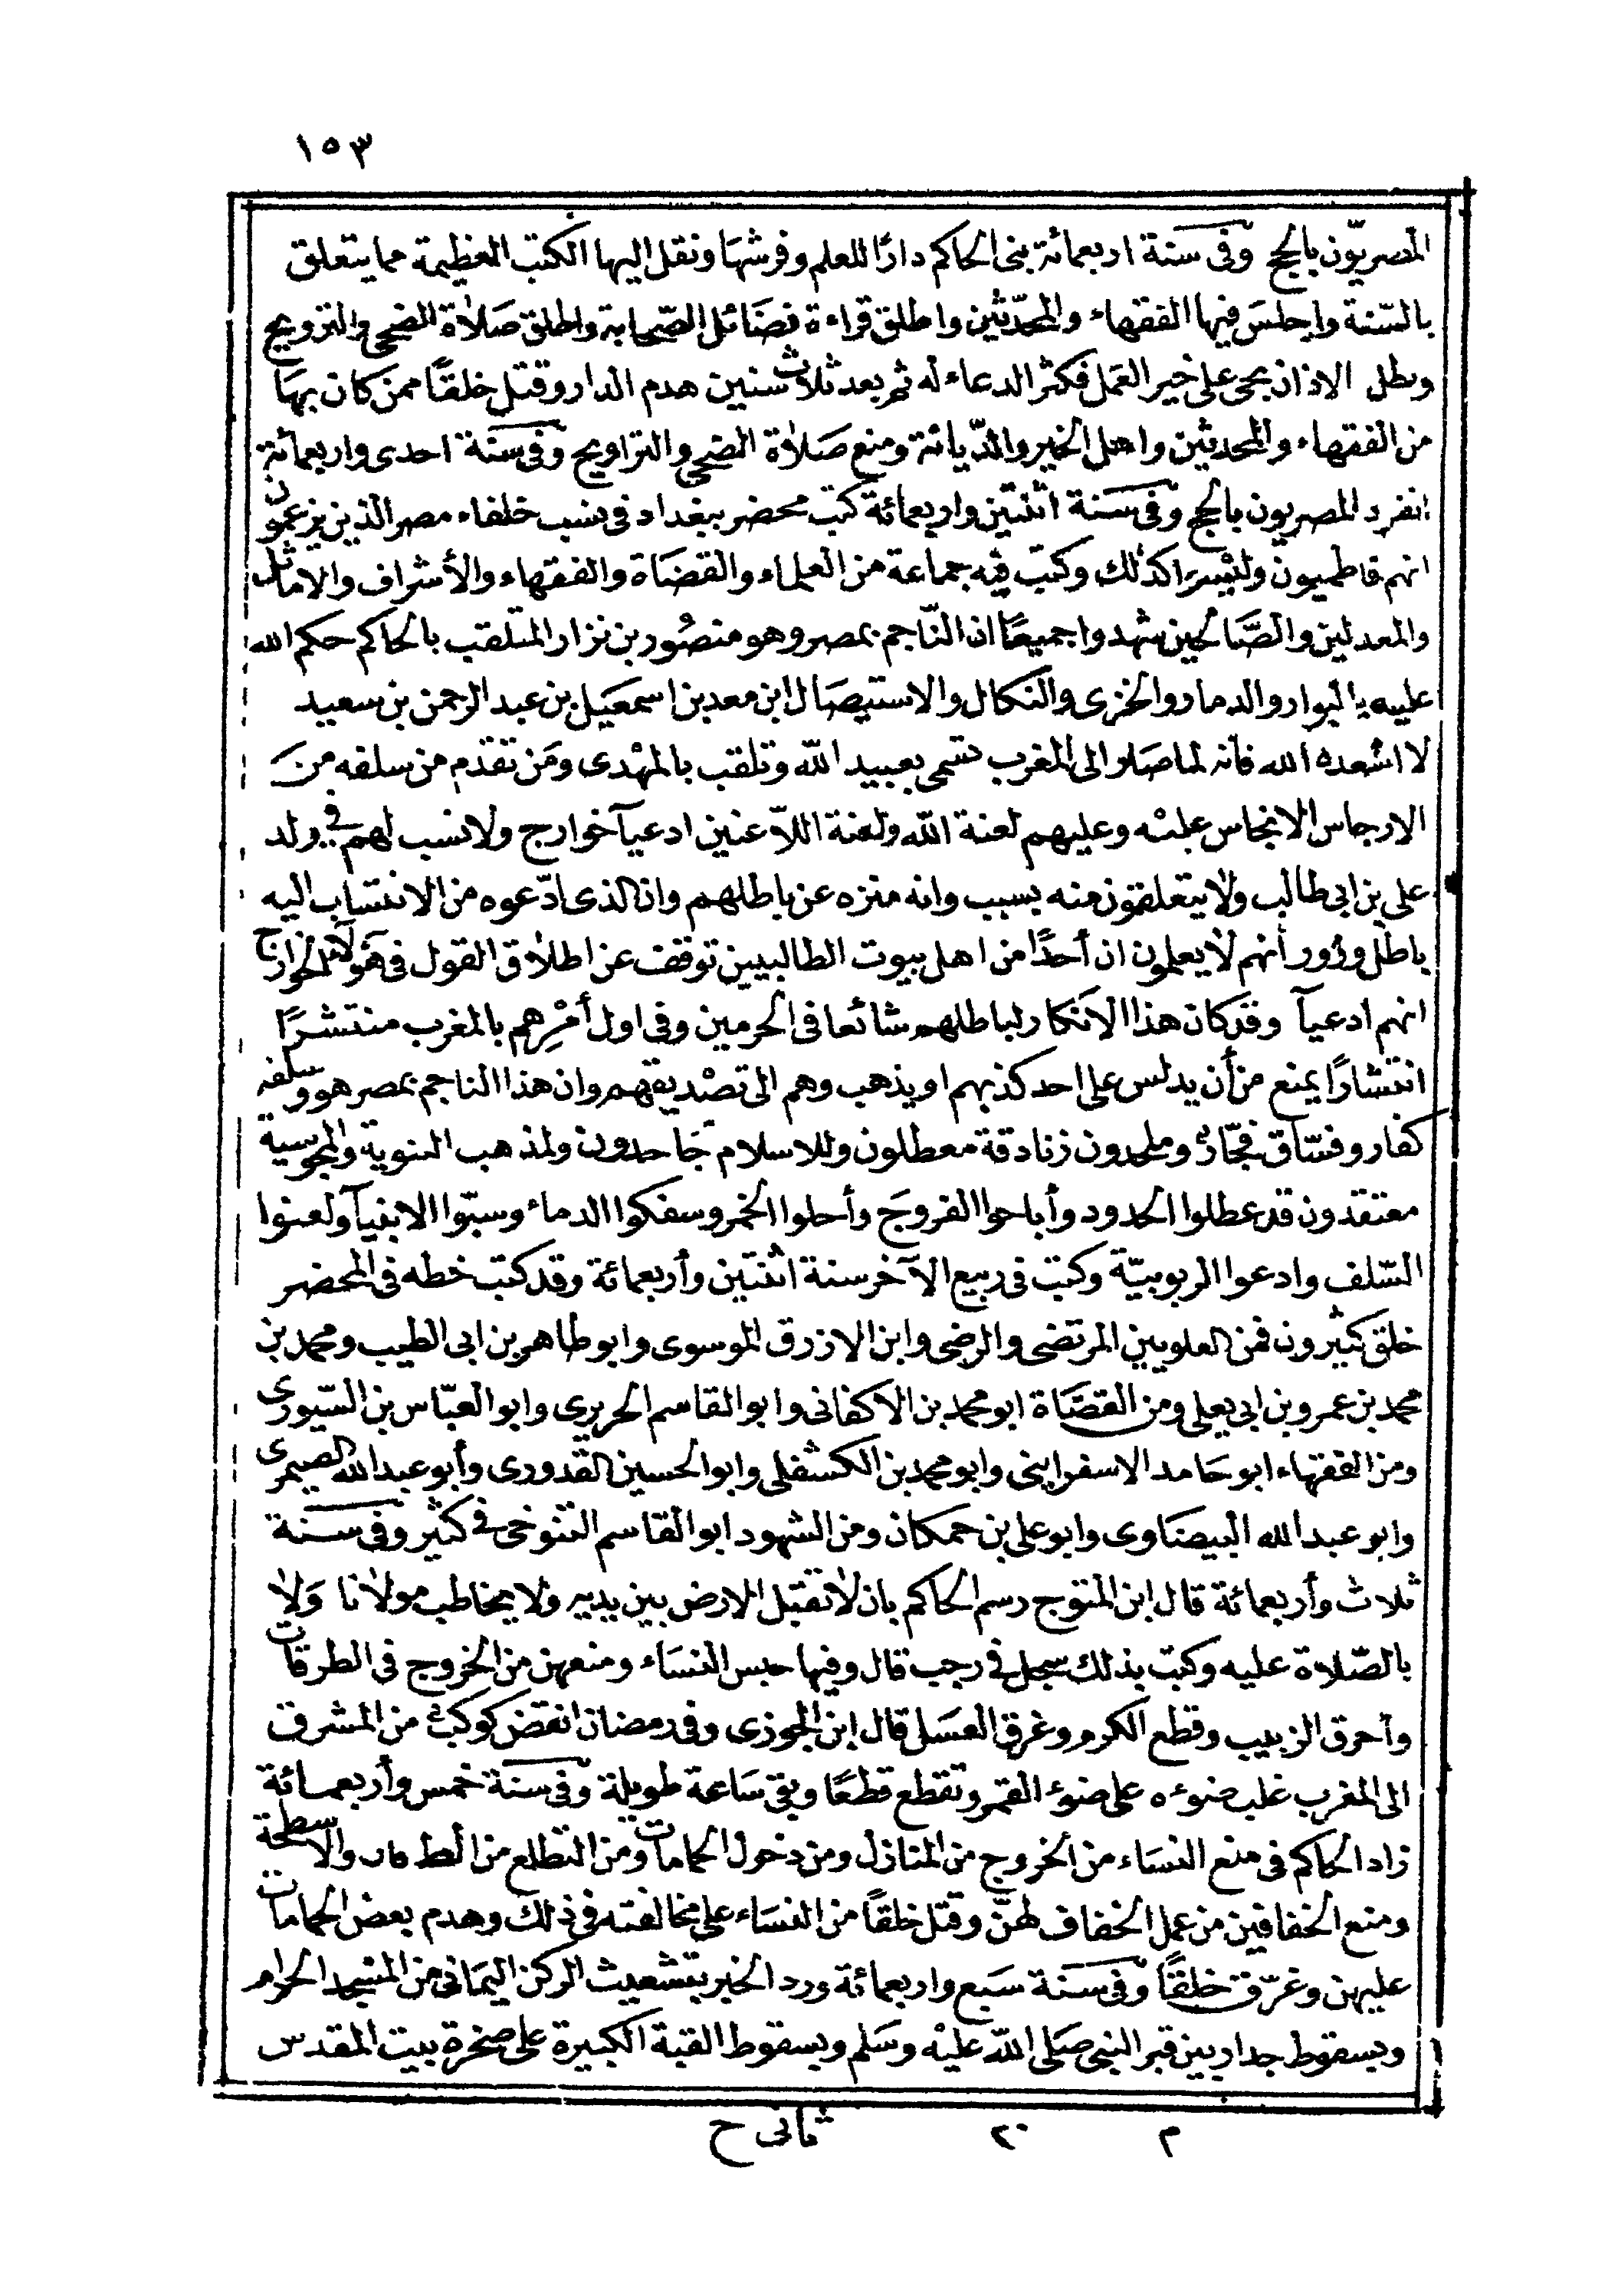 ١٥٣
المصريّون بالحج وفى سنة اربعمائة بنى الحاكم دارًا للعلم وفرشها ونقل اليها الكتب العظيمة مما يتعلق
بالسّنة واجلس فيها الفقهاء والمحدّثين واطلق قراءة فضائل الصّحابة واطلق صلاة الضحى والتراويح
وبطل الاذان بحى على خير العمل فكثر الدعاء له ثم بعد ثلاث سنين هدم الدار وقتل خلقًا ممن كان بها
من الفقهاء والمحدثين واهل الخير والدّيانة ومنع صلاة الضحى والتراويح وفى سنة احدى واربعمائة
انفرد المصريون بالحج وفى سنة اثنتين واربعمائة كتب محضر ببغداد فى نسب خلفاء مصر الذين يزعمون
انهم فاطميون وليسوا كذلك وكتب فيه جماعة من العلماء والقضاة والفقهاء والأشراف والاماثل
والمعدلين والصّالحين شهدوا جميعًا ان النّاجم بمصر وهو منصور بن نزار المتلقب بالحاكم حكم الله
عليه بالبوار والدمار والخزى والنكال والاستيصال ابن معد بن اسمعيل بن عبد الرحمن بن سعيد
لا اسعده الله فانه لما صار الى المغرب تسمى بعبيد الله وتلقب بالمهدى ومن تقدم من سلفه من
الارجاس الانجاس عليه وعليهم لعنة الله ولعنة اللاّعنين ادعيآ خوارج ولا نسب لهم فى ولد
على بن ابى طالب ولا يتعلقون منه بسبب وانه منزه عن باطلهم وان الذى ادّعوه من الانتساب اليه
باطل وزور أنهم لا يعلمون ان أحدًا من اهل بيوت الطالبيين توقف عن اطلاق القول فى هؤلآ الخوارج
انهم ادعيآ وقد كان هذا الانكار لباطلهم شائعا فى الحرمين وفى اول أمرهم بالمغرب منتشرًا
انتشارًا يمنع من أن يدلس على احد كذبهم او يذهب وهم الى تصديقهم وان هذا الناجم بمصر هو وسلفه
كفار وفسّاق فجّار وملحدون زنادقة معطلون وللاسلام جاحدون ولمذهب الثنوية والمجوسية
معتقدون قد عطلوا الحدود وأباحوا الفروج وأحلوا الخمر وسفكوا الدماء وسبّوا الانبيآ ولعنوا
السّلف وادعوا الربوبيّة وكتب فى ربيع الآخر سنة اثنتين وأربعمائة وقد كتب خطه فى المحضر
خلق كثيرون فمن العلويين المرتضى والرضى وابن الازرق الموسوى وابو طاهر بن ابى الطيب ومحمد بن
محمد بن عمرو بن ابى يعلى ومن القضاة ابو محمد بن الاكفانى وابو القاسم الحريرى وابو العبّاس بن السّيورى
ومن الفقهاء ابو حامد الاسفراينى وابو محمد بن الكشفلى وابو الحسين القدورى وأبو عبد الله الصيمرى
وابو عبد الله البيضاوى وابو على بن حمكان ومن الشهود ابو القاسم التنوخى فى كثير وفى سنة
ثلاث وأربعمائة قال ابن المتوج رسم الحاكم بان لا تقبل الارض بين يديه ولا يخاطب مولانا ولا
بالصّلاة عليه وكتب بذلك سجل فى رجب قال وفيها حبس النساء ومنعهن من الخروج فى الطرقات
وأحرق الزبيب وقطع الكرم وغرق العسل قال ابن الجوزى وفى رمضان انقض كوكب من المشرق
الى المغرب غلب ضوءه على ضوء القمر وتقطع قطعًا وبقى ساعة طويلة وفى سنة خمس وأربعمائة
زاد الحاكم فى منع النساء من الخروج من المنازل ومن دخول الحمامات ومن التطلع من والاسطحة
ومنع الخفافين من عمل الخفاف لهنّ وقتل خلقًا من النساء على مخالفته فى ذلك وهدم بعض الحمامات
عليهن وغرّق خلقًا وفى سنة سبع واربعمائة ورد الخبر بتشعيث الركن اليمانى من المسجد الحرام
وبسقوط جدار بين قبر النبى صلى الله عليه وسلم وبسقوط القبة الكبيرة على صخرة بيت المقدس
م ٢٠ ثانى ح